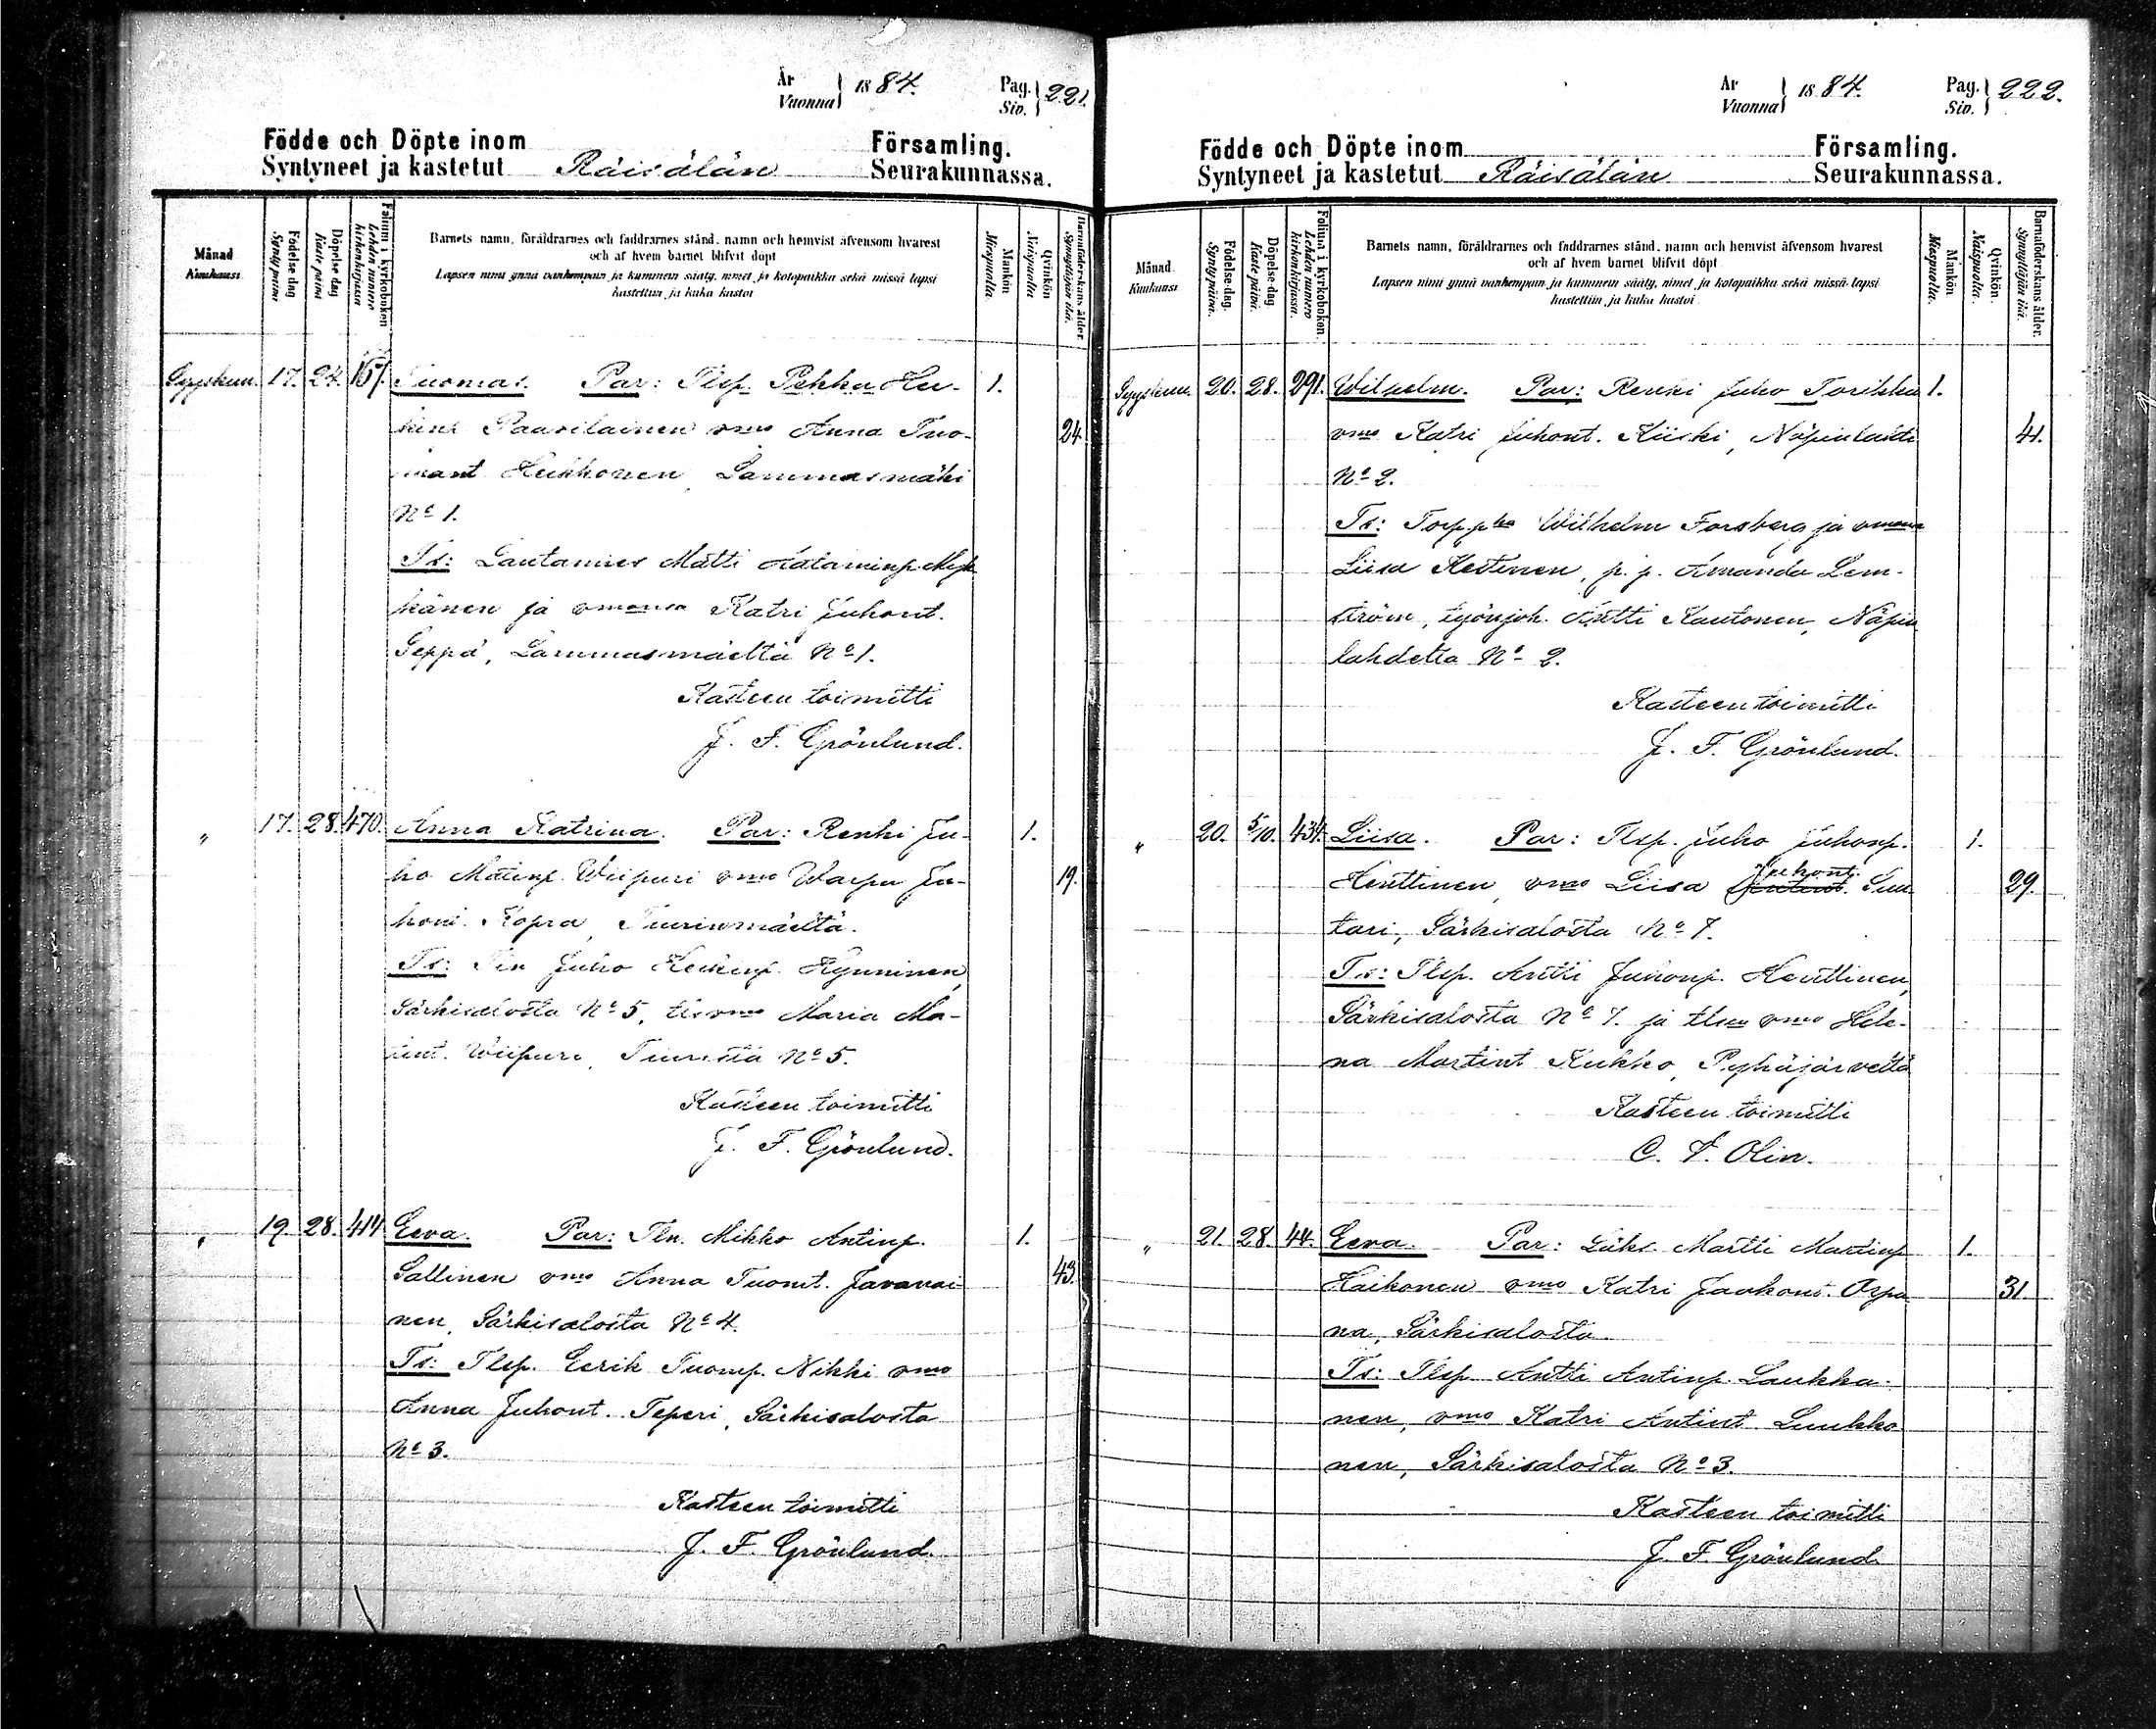 År
Vuonna
1884.
Pag.
Siv.
221.
Födde och Döpte inom
Församling.
Syntyneet ja kastetut Räisälän Seurakunnassa.
Månad
Kuukausi
Födelse dag
Synty päivä
Döpelse dag
Kaste päivä
Folium i kyrkoboken
Lehden numero kirkonkirjassa
Barnets namn, föräldrarnes och faddrarnes stånd, namn och hemvist äfvensom hvarest
och af hvem barnet blifvit döpt
Lapsen nimi ynnä vanhempain ja kummein sääty, nimet ja kotopaikka sekä missä lapsi
kastettiin ja kuka kastoi
Mankön
Miespuolta.
Qvinkön
Naispuolta
Barnaföderskans ålder.
Synnyttäjän ikä.
Syyskuu. 17. 24. 157. Tuomas. Par: Tlsp. Pekka Hei- 1.
kinp. Paavilainen vmo Anna Tuo- 24.
mant Heikkonen, Lammasmäki
No 1.
Ts: Lautamies Matti Adaminp.
känen ja vmonsa Katri Juhont.
Seppä, Lammasmäeltä No 1.
Kasteen toimitti
J. F. Grönlund.
" 17. 28. 470. Anna Katrina. Par: Renki Ju- 1.
ho Matinp. Wiipuri vmo Warpu Ju- 19.
hont. Kopra,
Ts: Juho Heikinp. Hynninen,
Särkisalosta No 5, vmo Maria Ma-
tint. Wiipuri, No 5.
Kasteen toimitti
J. F. Grönlund.
" 19. 28. 414 Eeva. Par: Tln. Mikko Antinp. 1.
Sallinen vmo Anna Tuomt. Javanai- 43.
nen, Särkisalosta No 4.
Ts: Tlsp. Eerik Tuomp. Nikki vmo
Anna Juhont. Teperi, Särkisalosta
No 3.
Kasteen toimitti
J. F. Grönlund.
År
Vuonna
1884.
Pag.
Siv.
222.
Födde och Döpte inom
Församling.
Syntyneet ja kastetut Räisälän Seurakunnassa.
Månad
Kuukausi
Födelse-dag.
Synty päivä.
Döpelse-dag.
Kaste päivä.
Folium i kyrkoboken.
Lehden numero kirkonkirjassa.
Barnets namn, föräldrarnes och faddrarnes stånd, namn och hemvist äfvensom hvarest
och af hvem barnet blifvit döpt
Lapsen nimi ynnä vanhempain ja kummein sääty, nimet ja kotopaikka sekä missä lapsi
kastettiin ja kuka kastoi
Mankön
Miespuolta.
Qvinkön.
Naispuolta.
Barnaföderskans ålder.
Synnyttäjän ikä.
Syyskuu. 20. 28. 291. Wilhelm. Par: Renki Juho Torikka 1.
vmo Katri Juhont. Kiiski, Näpinlahti 41.
No 2.
Ts: Torppha Wilhelm Forsberg ja vmonsa
Liisa Hestinen, p. p. Amanda Lem-
ström, työnjoh. Antti Kautonen, Näpin
lahdelta No 2.
Kasteen toimitti
J. F. Grönlund.
" 20. 5/10. 434. Liisa. Par: Tlsp. Juho Juhonp. 1.
Juhont.
Henttinen, vmo Liisa Suu- 29.
tari, Särkisalosta No 7.
Ts: Tlsp. Antti Juhonp. Henttinen,
Särkisalosta No 7. ja tlsen vmo Hele-
na Martint Kukko, Pyhäjärveltä
Kasteen toimitti
C. F. Olin.
" 21. 28. 44. Eeva. Par: Martti Martinp 1.
Kaikonen vmo Katri Jaakont. Orpa 31.
na, Särkisalosta
Ts: Tlsp. Antti Antinp. Laukka-
nen, vmo Katri Antint Luukko
nen, Särkisalosta No 3.
Kasteen toimitti
J. F. Grönlund